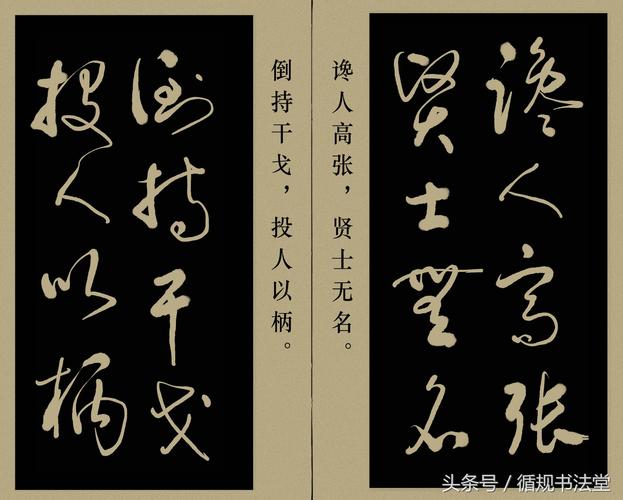 谗人高张
贤士無名
谗人高张，贤士无名。
倒持干戈，投人以柄。
倒持干戈
投人以柄
头条号／循规书法堂